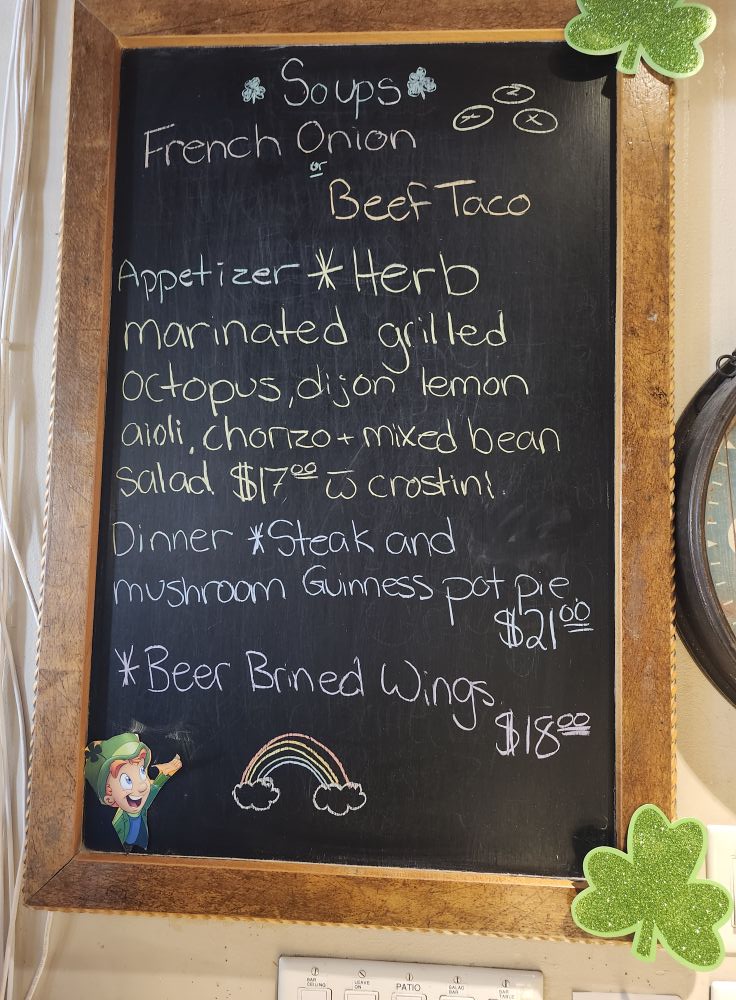 Soups
French Onion
or
Beef Taco
Appetizer * Herb
marinated grilled
octopus, dijon lemon
aioli, chorizo + mixed bean
salad $17.00 w̅ crostini.
Dinner * Steak and
mushroom Guinness pot pie
$21.00
* Beer Brined Wings
$18.00
BAR CEILING
LEAVE ON
PATIO
SALAD BAR
BAR TABLE